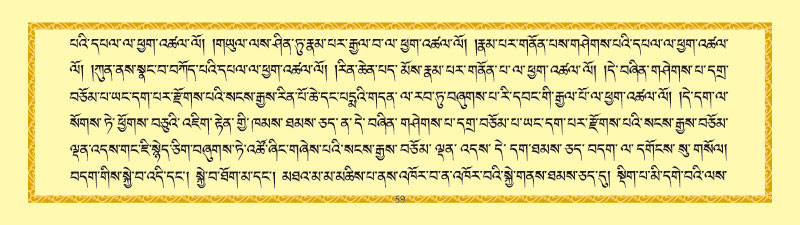 པའི་དཔལ་ལ་ཕྱག་འཚལ་ལོ། །གཡུལ་ལས་ཤིན་ཏུ་རྣམ་པར་རྒྱལ་བ་ལ་ཕྱག་འཚལ་ལོ། །རྣམ་པར་གནོན་པས་གཤེགས་པའི་དཔལ་ལ་ཕྱག་འཚལ་
ལོ། །ཀུན་ནས་སྣང་བ་བཀོད་པའི་དཔལ་ལ་ཕྱག་འཚལ་ལོ། །རིན་ཆེན་པད་མོས་རྣམ་པར་གནོན་པ་ལ་ཕྱག་འཚལ་ལོ། །དེ་བཞིན་གཤེགས་པ་དགྲ་
བཅོམ་པ་ཡང་དག་པར་རྫོགས་པའི་སངས་རྒྱས་རིན་པོ་ཆེ་དང་པདྨའི་གདན་ལ་རབ་ཏུ་བཞུགས་པ་རི་དབང་གི་རྒྱལ་པོ་ལ་ཕྱག་འཚལ་ལོ། །དེ་དག་ལ་
སོགས་ཏེ་ཕྱོགས་བཅུའི་འཇིག་རྟེན་གྱི་ཁམས་ཐམས་ཅད་ན་དེ་བཞིན་གཤེགས་པ་དགྲ་བཅོམ་པ་ཡང་དག་པར་རྫོགས་པའི་སངས་རྒྱས་བཅོམ་
ལྡན་འདས་གང་ཇི་སྙེད་ཅིག་བཞུགས་ཏེ་འཚོ་ཞིང་གཞེས་པའི་སངས་རྒྱས་བཅོམ་ལྡན་འདས་དེ་དག་ཐམས་ཅད་བདག་ལ་དགོངས་སུ་གསོལ།
བདག་གིས་སྐྱེ་བ་འདི་དང་། སྐྱེ་བ་ཐོག་མ་དང་། མཐའ་མ་མ་མཆིས་པ་ནས་འཁོར་བ་ན་འཁོར་བའི་སྐྱེ་གནས་ཐམས་ཅད་དུ། སྡིག་པ་མི་དགེ་བའི་ལས་
59